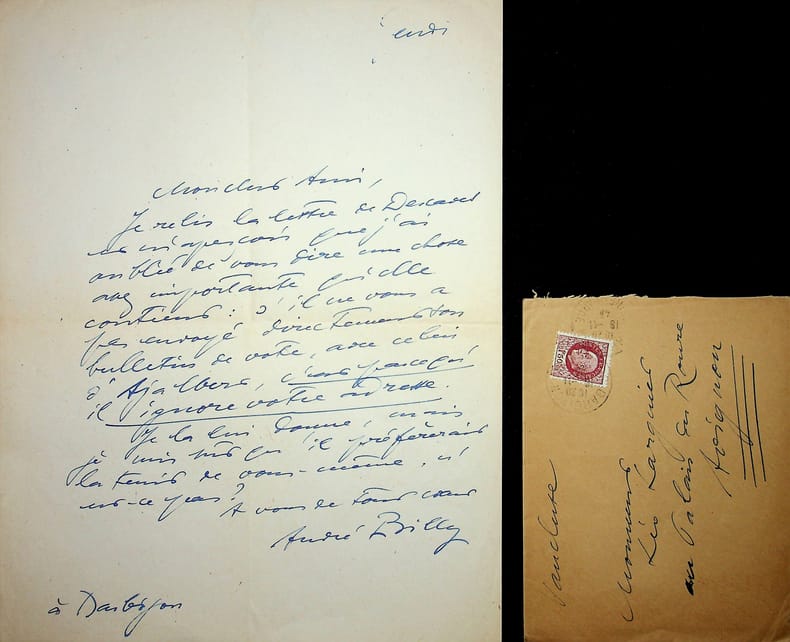 Mon cher Ami,
Je relis la lettre de Descaves
et m'aperçois que j'ai
oublié de vous dire une chose
assez importante qu'elle
contient : s'il ne vous a
pas envoyé directement son
bulletin de vote, avec celui
d'Ajalbert, c'est parce qu'
il ignore votre adresse.
Je la lui donne, mais
je suis sûr qu'il préférerait
la tenir de vous-même, n'
est-ce pas ?
A vous de tout cœur
André Billy
à Barbizon
Monsieur
Léo Larguier
au Palais du Roure
Avignon
Vaucluse